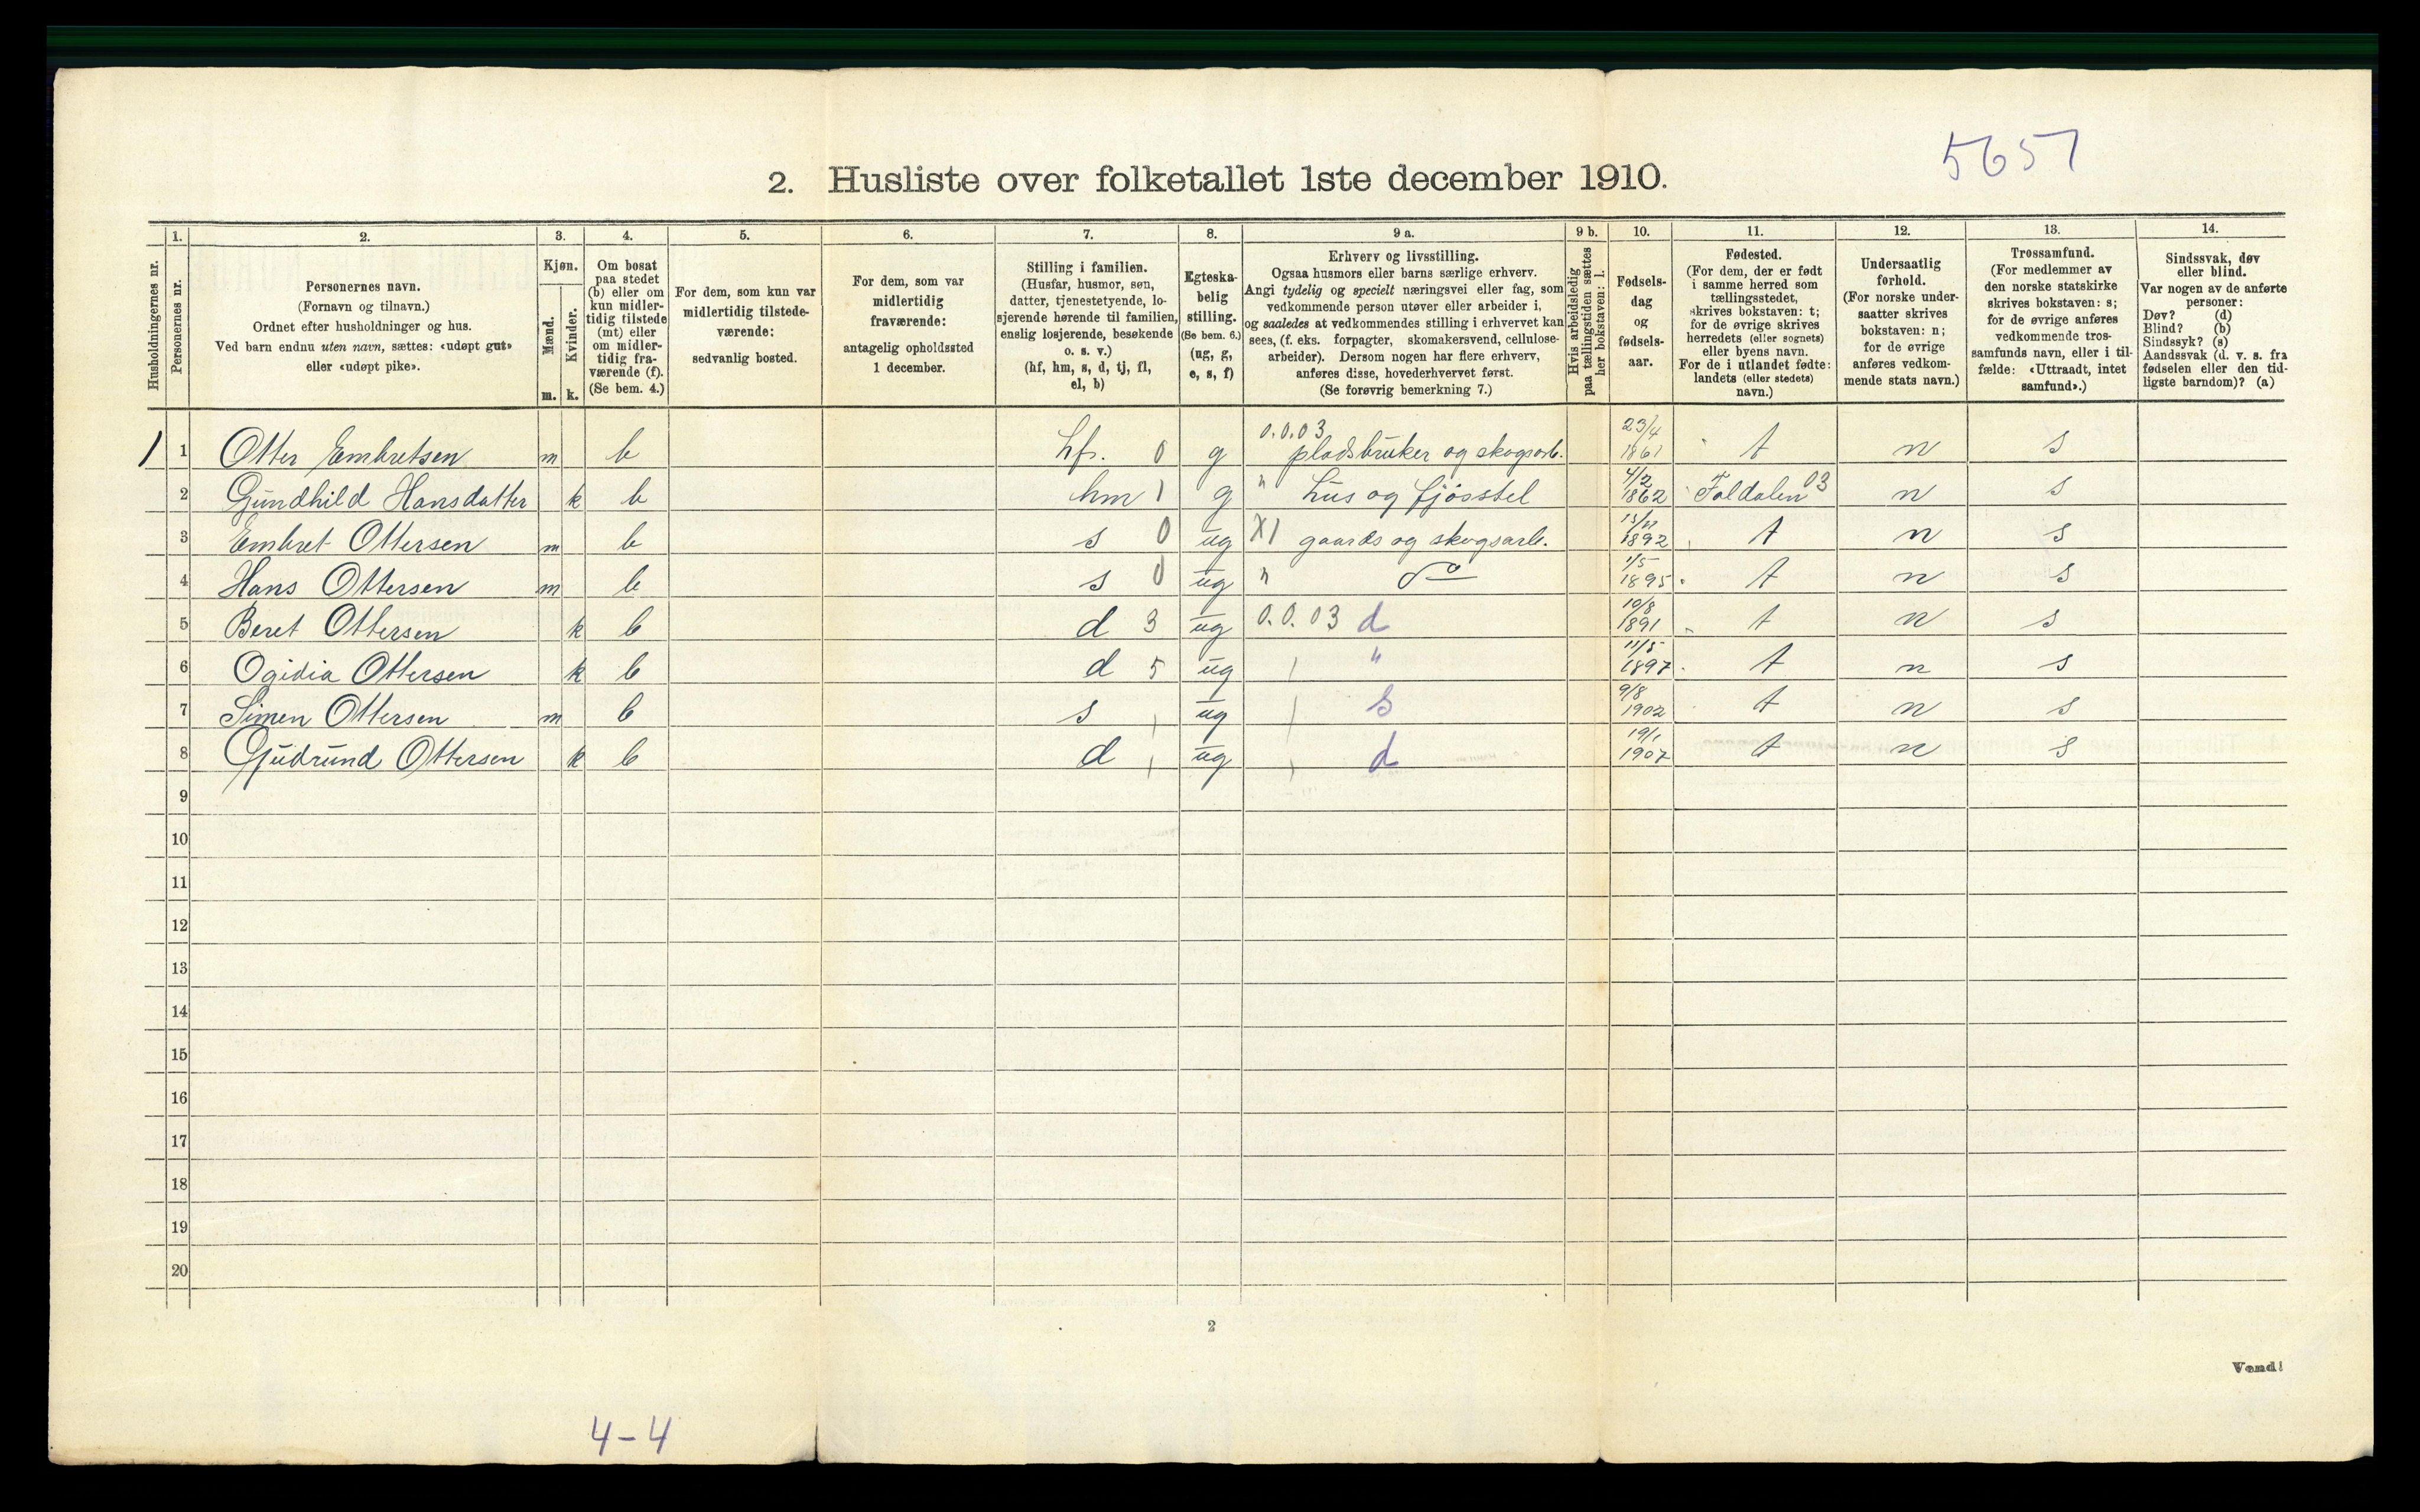 5657
2. Husliste over folketallet 1ste december 1910.
Husholdningernes nr.
1.
Personernes nr.
2.
Personernes navn.
(Fornavn og tilnavn.)
Ordnet efter husholdninger og hus.
Ved barn endnu uten navn, sættes: «udøpt gut»
eller «udøpt pike».
3.
Kjøn.
Mænd.
Kvinder.
m. k.
4.
Om bosat
paa stedet
(b) eller om
kun midler-
tidig tilstede
(mt) eller
om midler-
tidig fra-
værende (f).
(Se bem. 4.)
5.
For dem, som kun var
midlertidig tilstede-
værende:
sedvanlig bosted.
6.
For dem, som var
midlertidig
fraværende:
antagelig opholdssted
1 december.
7.
Stilling i familien.
(Husfar, husmor, søn,
datter, tjenestetyende, lo-
sjerende hørende til familien,
enslig losjerende, besøkende
o. s. v.)
(hf, hm, s, d, tj, fl,
el, b)
8.
Egteska-
belig
stilling.
(Se bem. 6.)
(ug, g,
e, s, f)
9 a.
Erhverv og livsstilling.
Ogsaa husmors eller barns særlige erhverv.
Angi tydelig og specielt næringsvei eller fag, som
vedkommende person utøver eller arbeider i,
og saaledes at vedkommendes stilling i erhvervet kan
sees, (f. eks. forpagter, skomakersvend, cellulose-
arbeider). Dersom nogen har flere erhverv,
anføres disse, hovederhvervet først.
(Se forøvrig bemerkning 7.)
9 b.
Hvis arbeidsledig
paa tællingstiden sættes
her bokstaven: l.
10.
Fødsels-
dag
og
fødsels-
aar.
11.
Fødested.
(For dem, der er født
i samme herred som
tællingsstedet,
skrives bokstaven: t;
for de øvrige skrives
herredets (eller sognets)
eller byens navn.
For de i utlandet fødte:
landets (eller stedets)
navn.)
12.
Undersaatlig
forhold.
(For norske under-
saatter skrives
bokstaven: n;
for de øvrige
anføres vedkom-
mende stats navn.)
13.
Trossamfund.
(For medlemmer av
den norske statskirke
skrives bokstaven: s;
for de øvrige anføres
vedkommende tros-
samfunds navn, eller i til-
fælde: «Uttraadt, intet
samfund».)
14.
Sindssvak, døv
eller blind.
Var nogen av de anførte
personer:
Døv? (d)
Blind? (b)
Sindssyk? (s)
Aandssvak (d. v. s. fra
fødselen eller den tid-
ligste barndom)? (a)
1 1 Otter Embretsen m b hf. 0 g 0.0.03 pladsbruker og skogsarb. 23/4 1861 t n s
2 Gundhild Hansdatter k b hm 1 g " hus og fjösstel 4/2 1862 Foldalen 03 n s
3 Embret Ottersen m b s 0 ug X1 gaards og skogsarb. 1892 t n s
4 Hans Ottersen m b s 0 ug " do 1/5 1895 t n s
5 Beret Ottersen k b d 3 ug 0.0.03 d 10/8 1891 t n s
6 Ogidia Ottersen k b d 5 ug " 11/5 1897 t n s
7 Simen Ottersen m b s ug s 9/8 1902 t n s
8 Gjudrund Ottersen k b d ug d 19/1 1907 t n s
9
10
11
12
13
14
15
16
17
18
19
20
2
Vend!
4-4